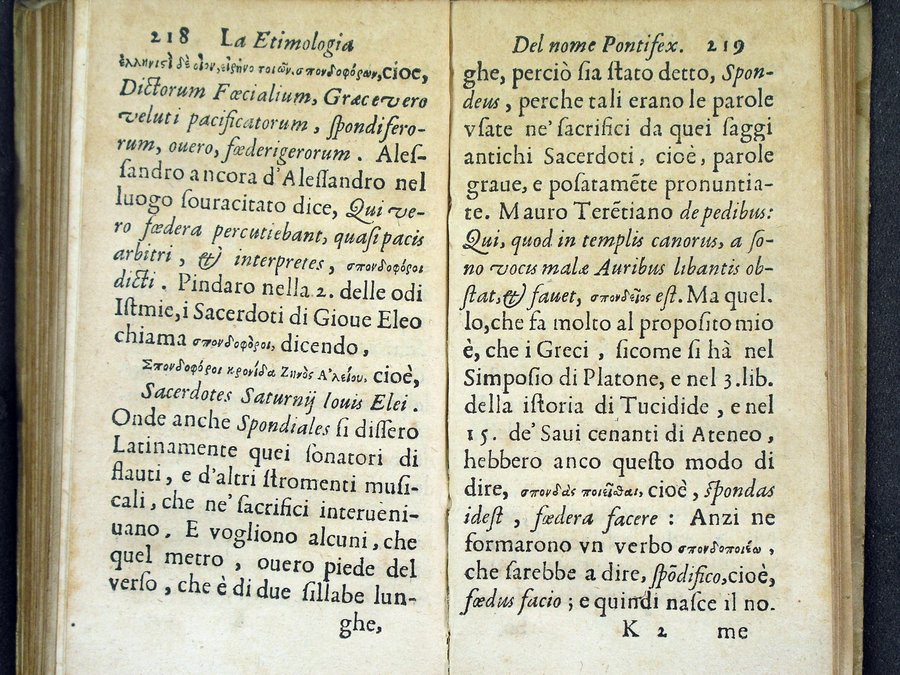 218 La Etimologia
ἑλληνιςὶ δὲ οἷον, εἰρηνοποιῶν, σπονδοφόρων, cioe,
Dictorum Fœcialium, Græce vero
veluti pacificatorum, ſpondifero-
rum, ouero, fœderigerorum. Aleſ-
ſandro ancora d'Aleſſandro nel
luogo ſouracitato dice, Qui ve-
ro fœdera percutiebant, quaſi pacis
arbitri, & interpretes, σπονδοφόροι
dicti. Pindaro nella 2. delle odi
Iſtmie, i Sacerdoti di Gioue Eleo
chiama σπονδοφόροι, dicendo,
Σπονδοφόροι κρονίδα Ζηνὸς Α'λείου, cioè,
Sacerdotes Saturnij Iouis Elei.
Onde anche Spondiales ſi diſſero
Latinamente quei ſonatori di
flauti, e d'altri ſtromenti muſi-
cali, che ne' ſacrifici interueni-
uano. E vogliono alcuni, che
quel metro, ouero piede del
verſo, che è di due ſillabe lun-
ghe,
Del nome Pontifex. 219
ghe, perciò ſia ſtato detto, Spon-
deus, perche tali erano le parole
vſate ne' ſacrifici da quei ſaggi
antichi Sacerdoti, cioè, parole
graue, e poſatamẽte pronuntia-
te. Mauro Terẽtiano de pedibus:
Qui, quod in templis canorus, a ſo-
no vocus malæ Auribus libantis ob-
ſtat, & fauet, σπονδεῖος eſt. Ma quel.
lo, che fa molto al propoſito mio
è, che i Greci, ſicome ſi hà nel
Simpoſio di Platone, e nel 3. lib.
della iſtoria di Tucidide, e nel
15. de' Saui cenanti di Ateneo,
hebbero anco queſto modo di
dire, σπονδὰς ποιεῖσθαι, cioè, ſpondas
ideſt, fœdera facere: Anzi ne
formarono vn verbo σπονδοποιέω,
che ſarebbe a dire, ſpõdifico, cioè,
fœdus facio; e quindi naſce il no.
K 2 me